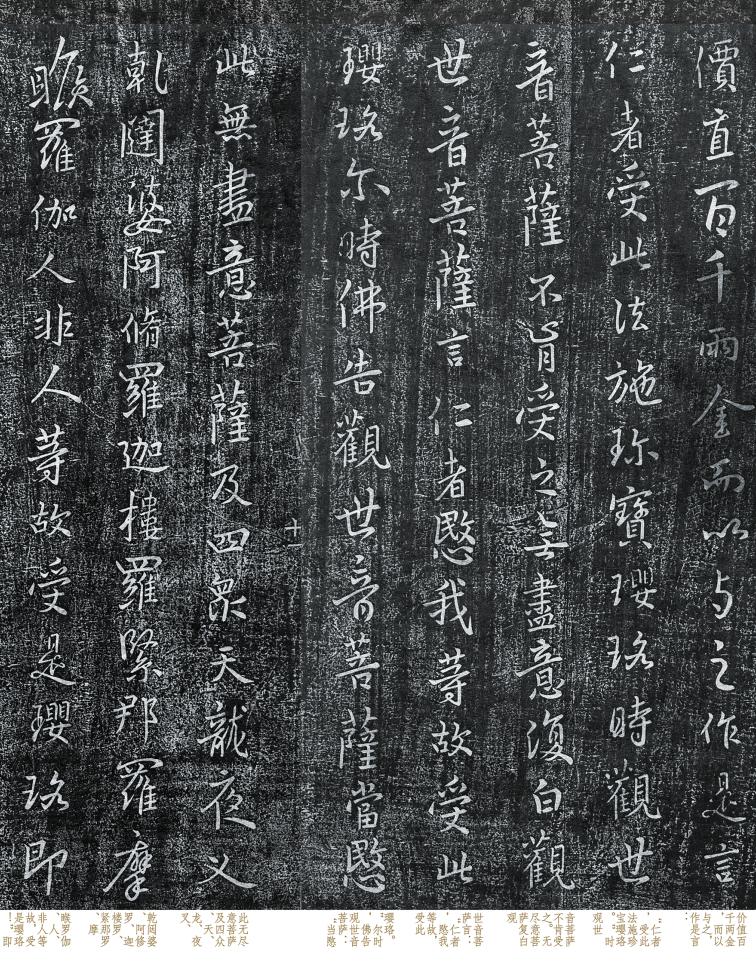 價直百千兩金而以与之作是言
仁者受此法施珎寶瓔珞時觀世
音菩薩不肯受之无盡意復白觀
世音菩薩言仁者愍我等故受此
瓔珞尒時佛告觀世音菩薩當愍
此無盡意菩薩及四衆天龍夜义
乾闥婆阿脩羅迦樓羅緊那羅摩
睺羅伽人非人等故受是瓔珞即
十
价值百
千两金
，而以
与之，
作是言
：
“仁者
，受此
法施珍
宝璎珞
。”时
观世
音菩萨
不肯受
之。无
尽意菩
萨复白
观
世音菩
萨言：
“仁者
，愍我
等故，
受此
璎珞。
”尔时
，佛告
观世音
菩萨：
“当愍
此无尽
意菩萨
及四众
、天、
龙、夜
叉、
乾闼婆
、阿修
罗、迦
楼罗、
紧那罗
、摩
睺罗伽
、人、
非人等
故，受
是璎珞
！”即